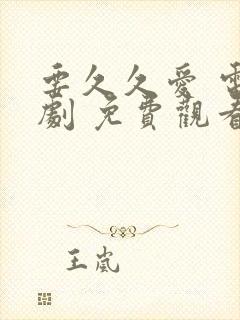 要久久愛 電
劇 免費觀看
王嵐